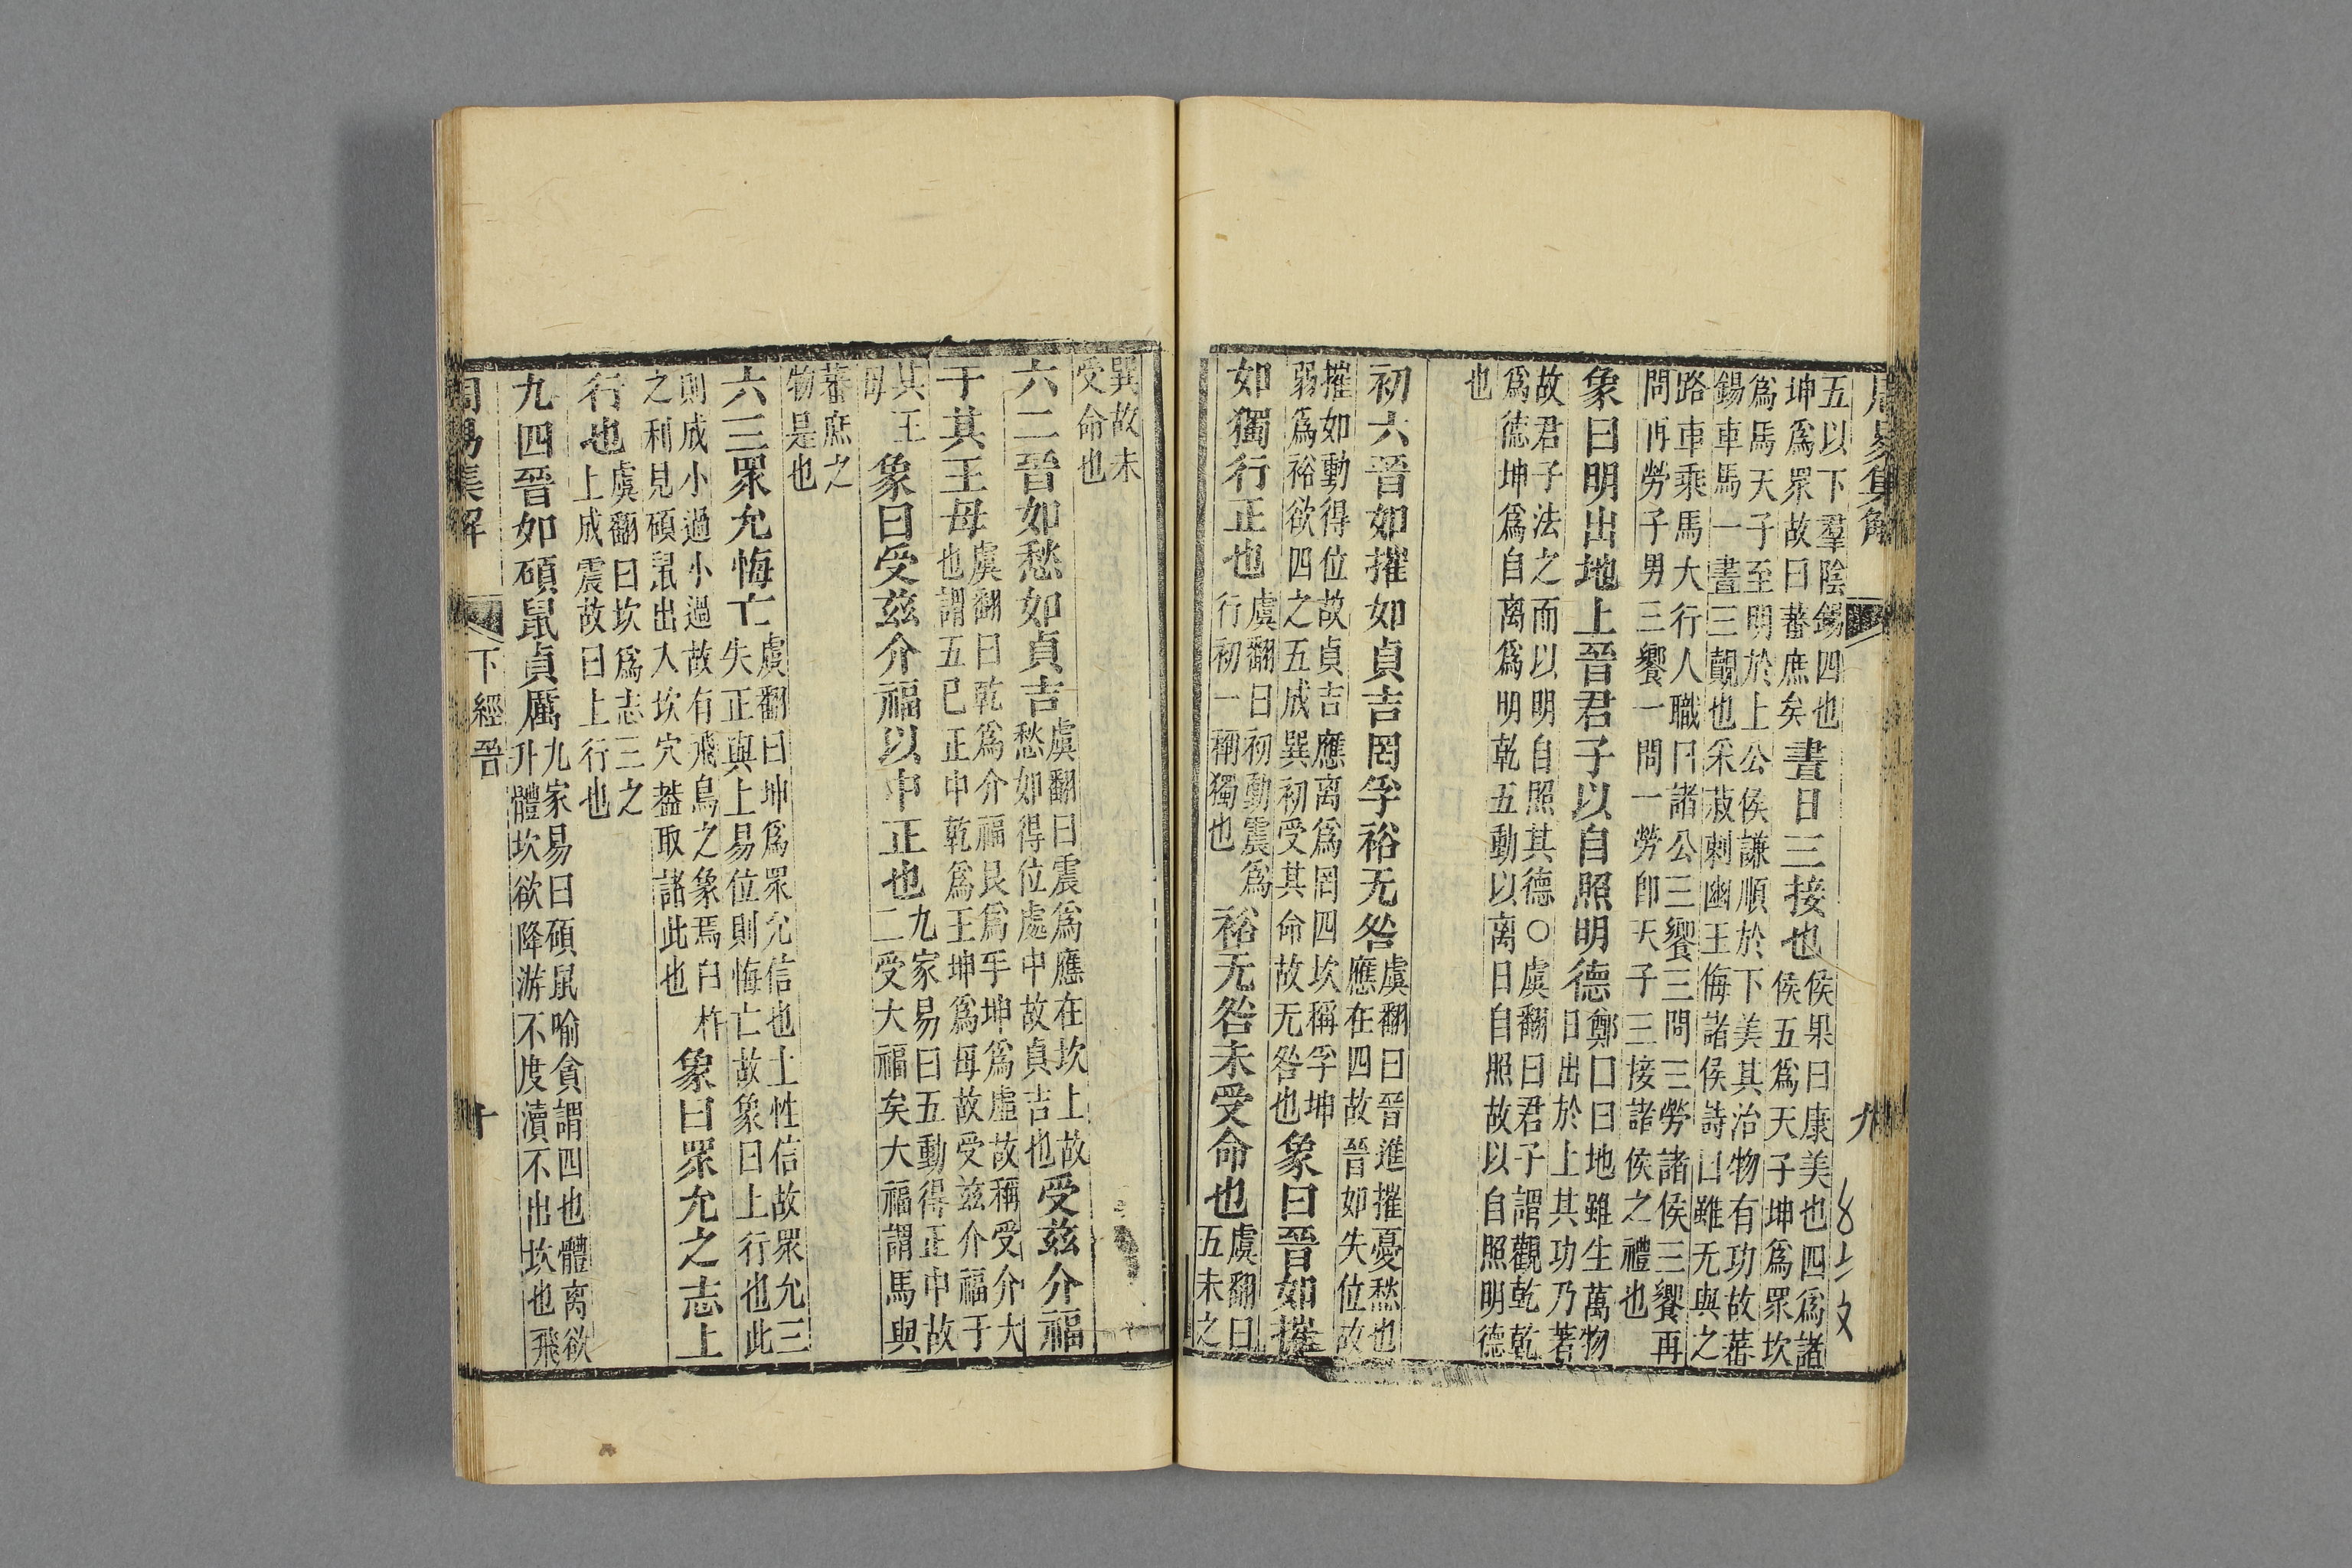 周易集解
九
五以下羣陰錫四也
坤爲眾故曰蕃庶矣
晝日三接也
侯果曰康美也四爲諸
侯五爲天子坤爲眾坎
爲馬天子至明於上公侯謙順於下美其治物有功故蕃
錫車馬一晝三覿也采菽刺幽王侮諸侯詩曰雖无與之
路車乘馬大行人職曰諸公三饗三問三勞諸侯三饗再
問再勞子男三饗一問一勞卽天子三接諸侯之禮也
象曰明出地上晉君子以自照明德
鄭曰地雖生萬物
日出於上其功乃著
故君子法之而以明自照其德○虞翻曰君子謂觀乾乾
爲德坤爲自离爲明乾五動以离日自照故以自照明德
也
初六晉如摧如貞吉罔孚裕无咎
虞翻曰晉進摧憂愁也
應在四故晉如失位故
摧如動得位故貞吉應离爲罔四坎稱孚坤
弱爲裕欲四之五成巽初受其命故无咎也
象曰晉如摧
如獨行正也
虞翻曰初動震爲
行初一稱獨也
裕无咎未受命也
虞翻曰
五未之
巽故未
受命也
六二晉如愁如貞吉
虞翻曰震爲應在坎上故
愁如得位處中故貞吉也
受茲介福
于其王母
虞翻曰乾爲介福艮爲手坤爲虛故稱受介大
也謂五已正中乾爲王坤爲母故受茲介福于
其王
母
象曰受茲介福以中正也
九家易曰五動得正中故
二受大福矣大福謂馬與
蕃庶之
物是也
六三眾允悔亡
虞翻曰坤爲眾允信也土性信故眾允三
失正與上易位則悔亡故象曰上行也此
則成小過小過故有飛鳥之象焉臼杵
之利見碩鼠出入坎穴蓋取諸此也
象曰眾允之志上
行也
虞翻曰坎爲志三之
上成震故曰上行也
九四晉如碩鼠貞厲
九家易曰碩鼠喻貪謂四也體离欲
升體坎欲降游不度瀆不出坎也飛
周易集解
下經 晉
十